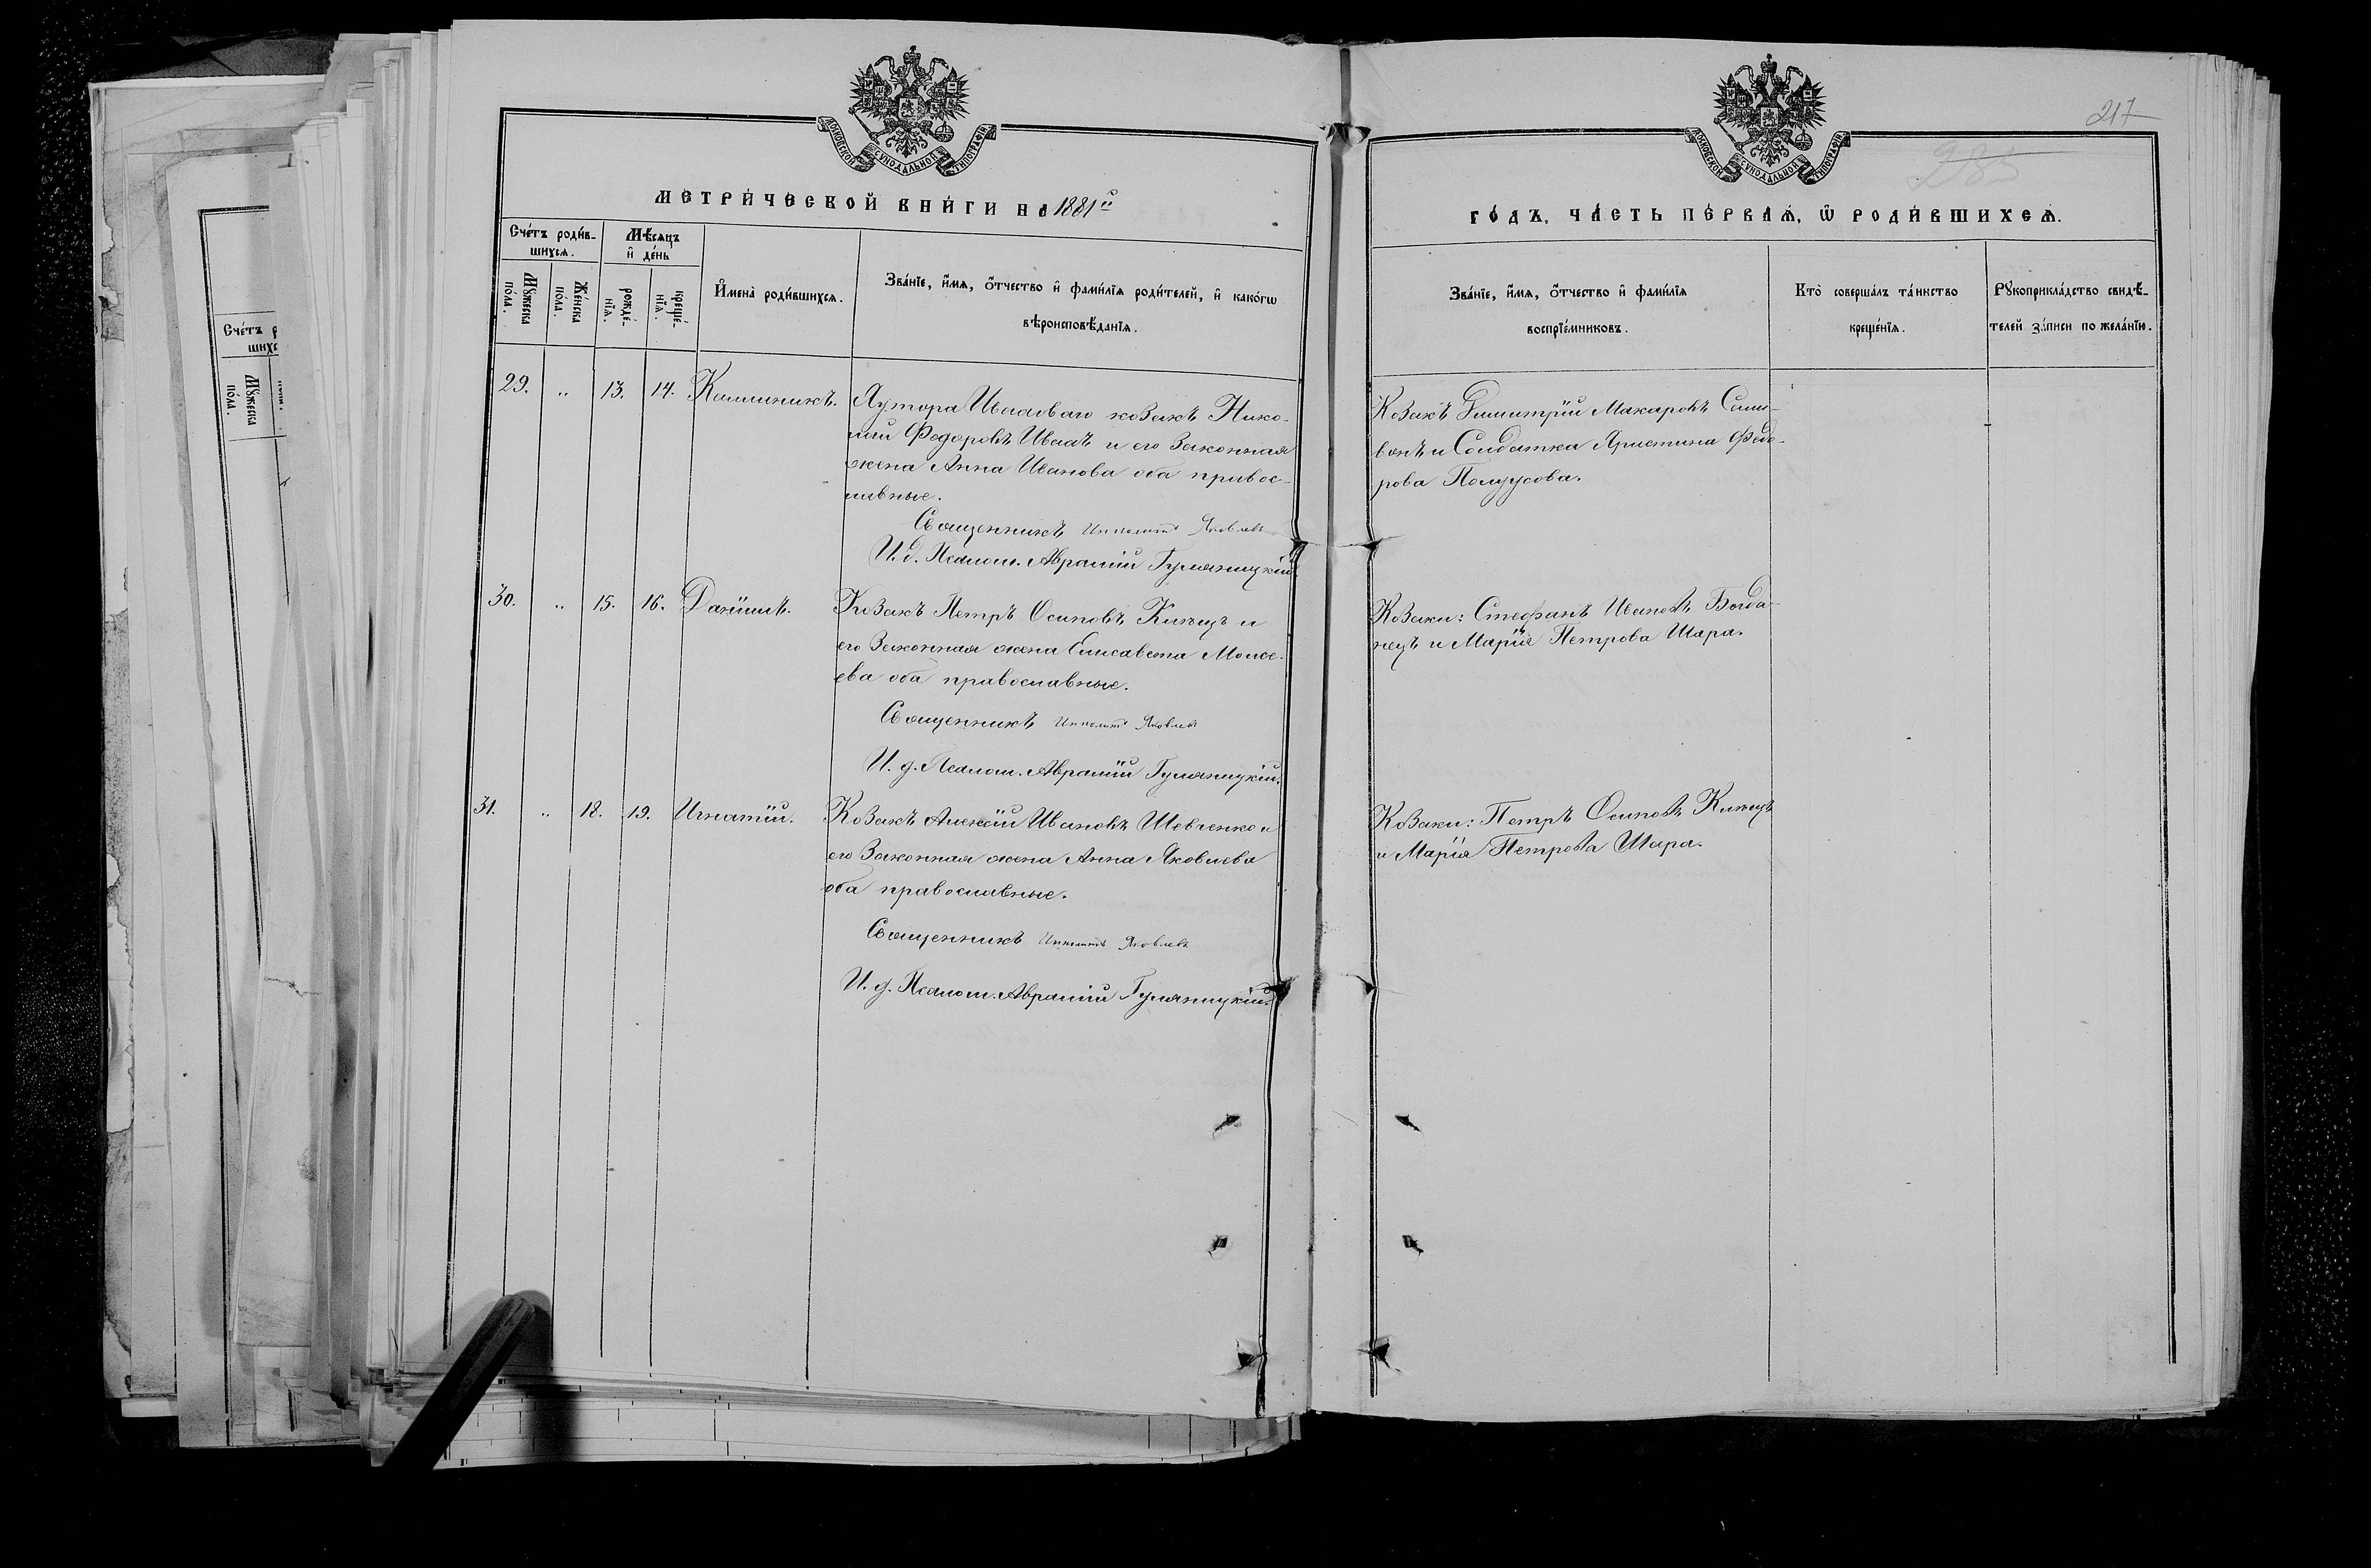 МОСКОВСКОЙ СѴНОДАЛЬНОЙ ТИПОГРАФІИ
МЕТРИ́ЧЕСКОЙ КНИ́ГИ НА 1881й
Сче́тъ роди́в-
шихсѧ.
Мѣ́сѧцъ
и҆ де́нь
Мꙋ́жеска
по́ла.
Же́нска
по́ла.
рожде́-
нїѧ.
креще́-
нїѧ.
И҆мена̀ роди́вшихсѧ.
Зва́нїе, и҆́мѧ, ѻ҆́тчество и҆ фами́лїѧ роди́телей, и҆ како́гѡ
вѣроисповѣ́данїѧ.
29. " 13. 14. Каллиникъ.
Хутора Иваховаго козакъ Нико-
лай Федоровъ Ивахъ и его законная
жена Анна Иванова оба правос-
лавные.
Священникъ Ипполитъ Яковлевъ
И. д. Псалом. Авраамій
30. " 15. 16. Даніилъ.
Козакъ Петръ Осиповъ и
его законная жена Елисавета Моисе-
ева оба православные.
Священникъ Ипполитъ Яковлевъ
И. д. Псалом. Авраамій
31. " 18. 19. Игнатій.
Козакъ Алексій Ивановъ Шевченко и
его законная жена Анна Яковлева
оба православные.
Священникъ Ипполитъ Яковлевъ
И. д. Псалом. Авраамій
217
285
МОСКОВСКОЙ СѴНОДАЛЬНОЙ ТИПОГРАФІИ
ГО́ДЪ, ЧА́СТЬ ПЕ́РВАѦ, Ѡ҆ РОДИ́ВШИХСѦ.
Зва́нїе, и҆́мѧ, ѻ҆́тчество и҆ фами́лїѧ
воспрїе́мниковъ.
Кто̀ соверша́лъ та́инство
креще́нїѧ.
Рꙋкоприкла́дство свидѣ́-
телей за́писи по жела́нїю.
Козакъ Димитрій Макаровъ
и Солдатка Христина Федо-
рова
Козаки: Стефанъ Ивановъ Богда-
нецъ и Марія Петрова Шара.
Козаки: Петръ Осиповъ
и Марія Петрова Шара.
Сче́тъ р
шихс
Мꙋ́жеска
по́ла.